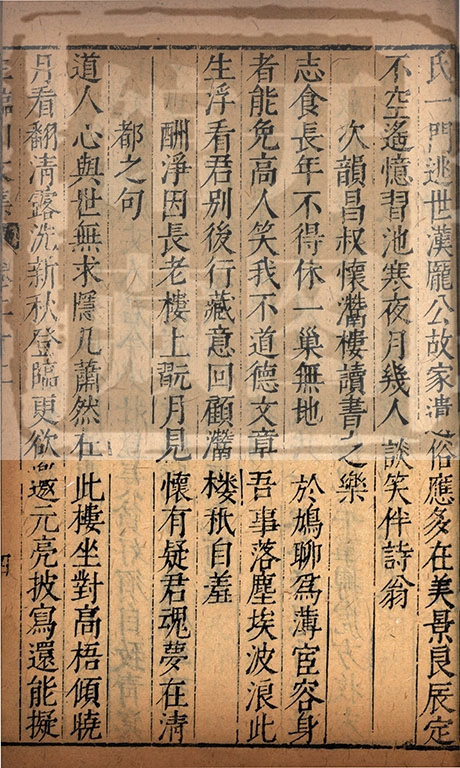 氏一門逃世漢龐公故家遺俗應多在美景良辰定
不空遙憶習池寒夜月幾人談笑伴詩翁
次韻昌叔懷灊樓讀書之樂
志食長年不得休一巢無地於鳩聊爲薄宦容身
者能免高人笑我不道德文章吾事落塵埃波浪此
生浮看君別後行藏意回顧灊樓秖自羞
酬淨因長老樓上翫月見懷有疑君魂夢在清
都之句
道人心與世無求隱几蕭然在此樓坐對高梧傾曉
月看翻清露洗新秋登臨更欲邀元亮披寫還能擬
四